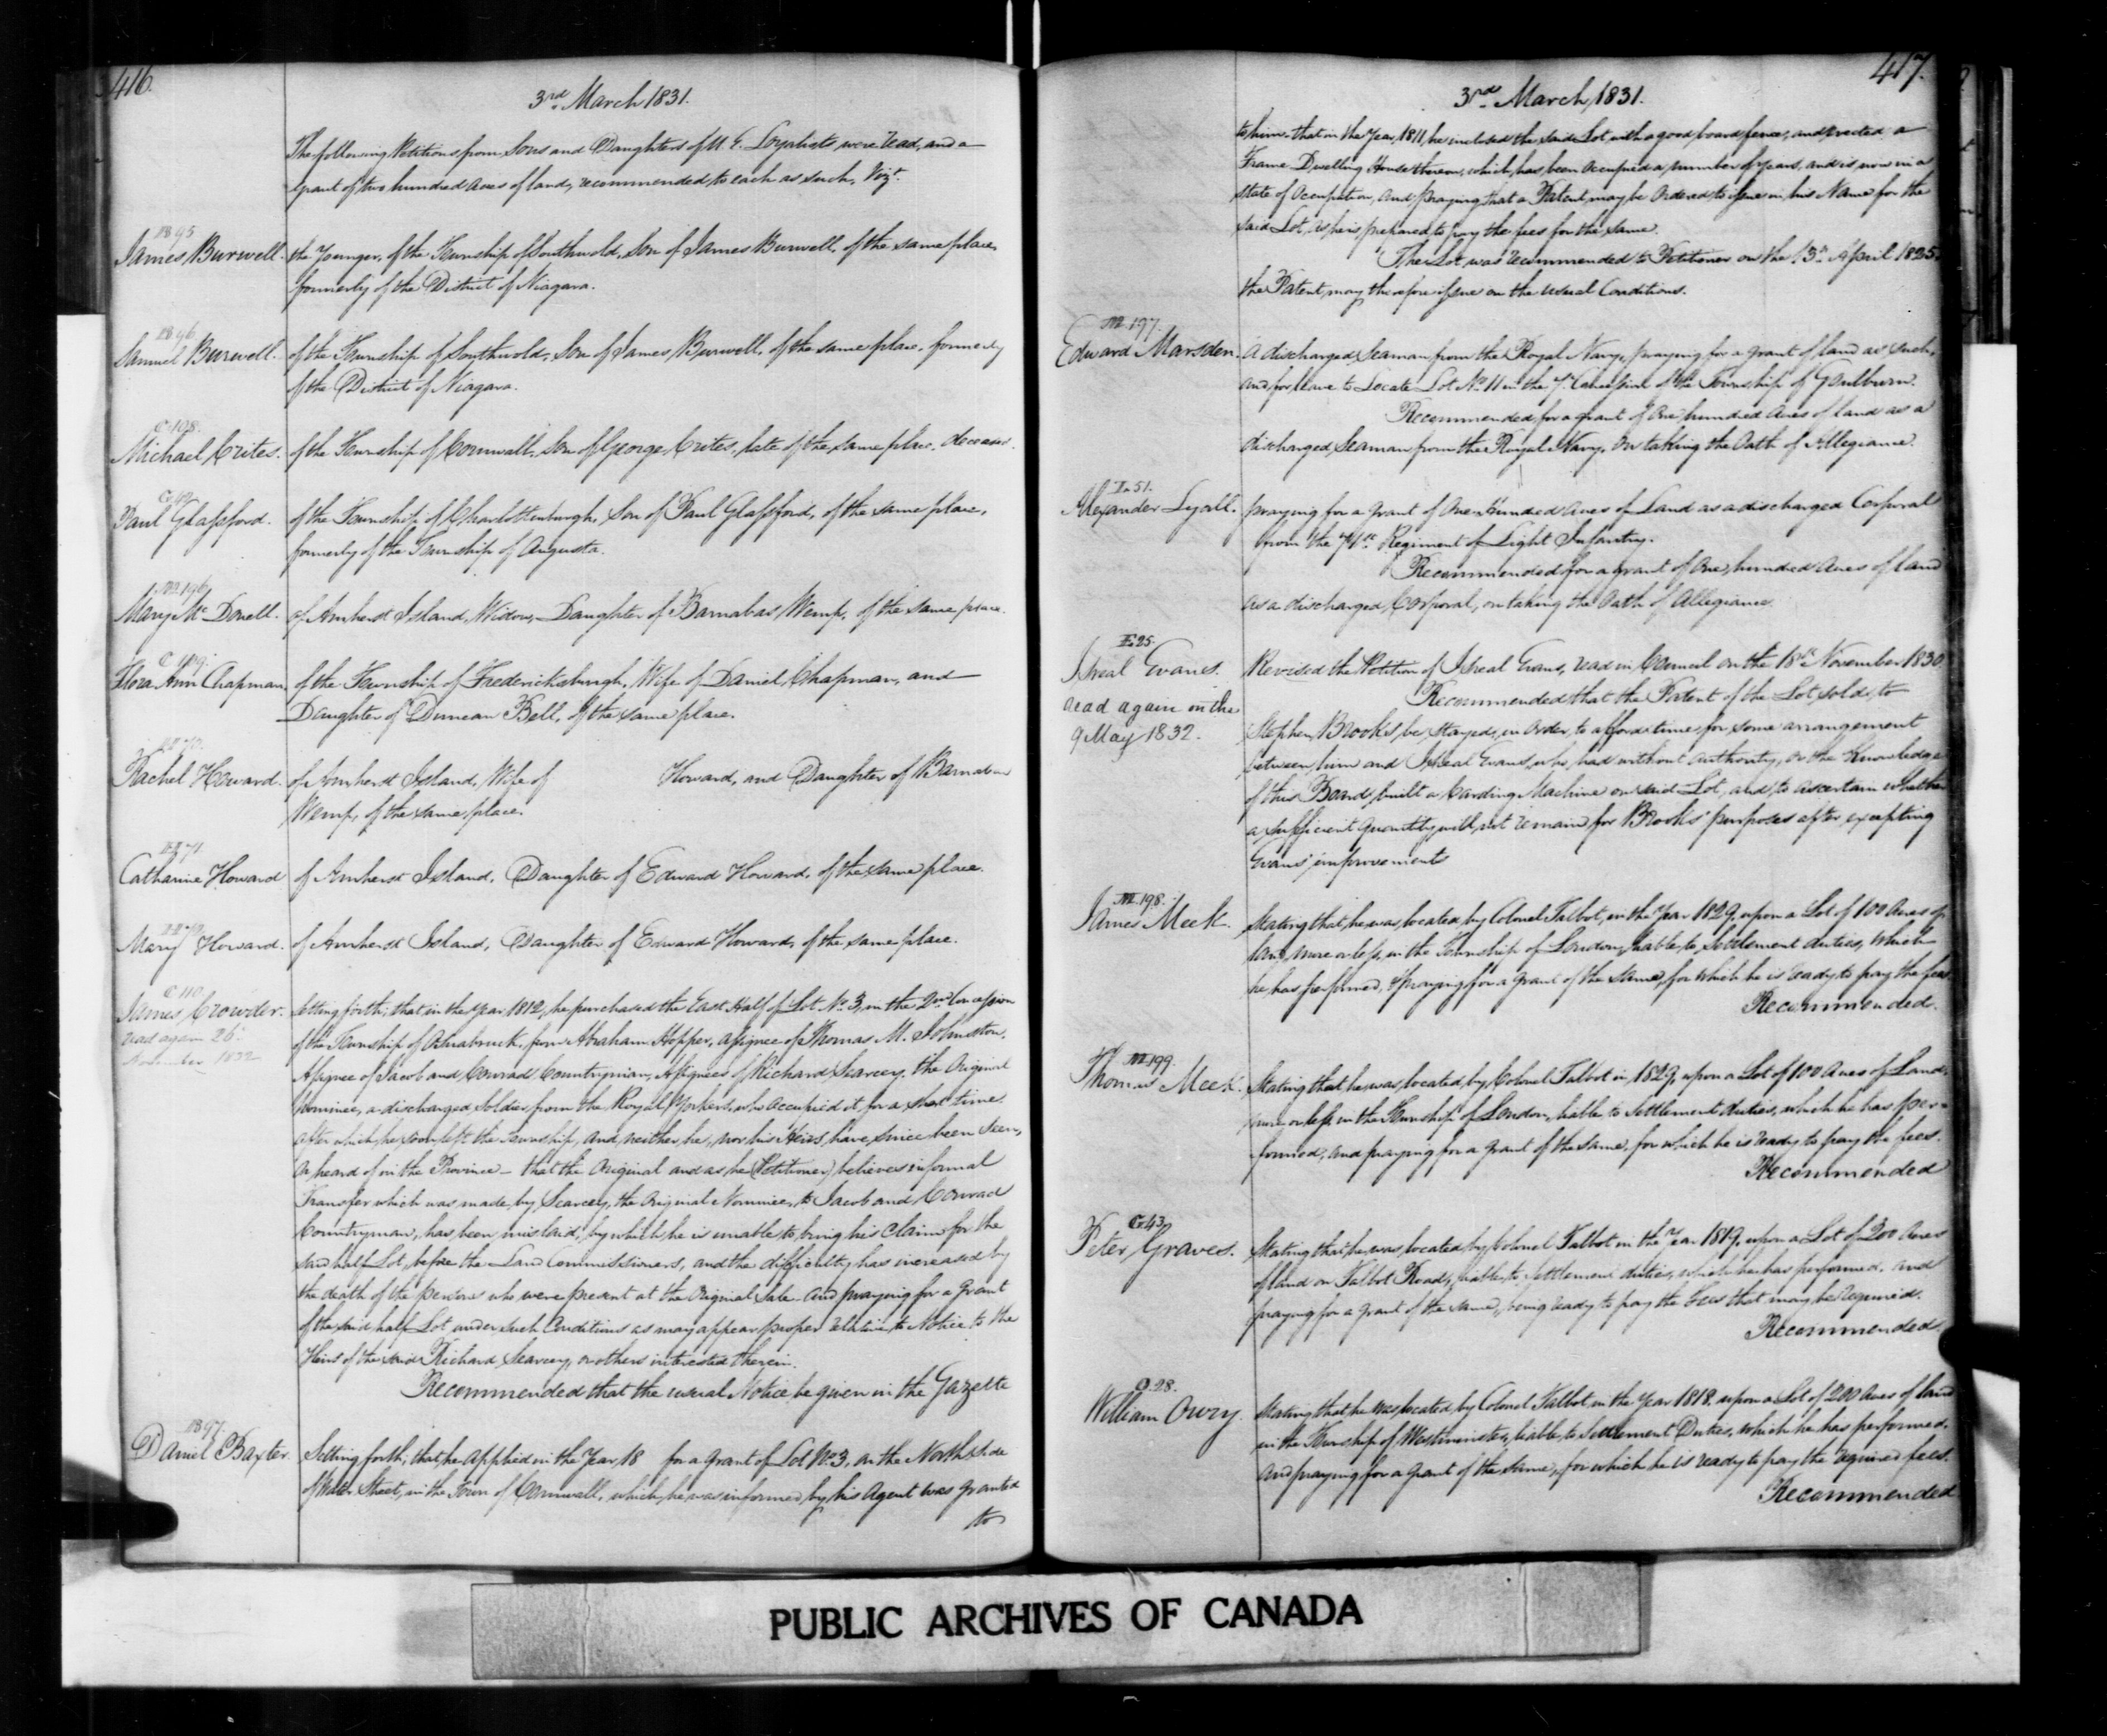 416.
3rd March 1831.
The following Petitions from Sons and Daughters of U. E. Loyalists were read, and a
grant of two hundred Acres of land, recommended to each as such, Vizt.
B 95
James Burwell. the Younger, of the Township of Southwold, Son of James Burwell, of the same place,
formerly of the District of Niagara.
B 96
Samuel Burwell. of the Township of Southwold, Son of James Burwell, of the same place, formerly
of the District of Niagara.
C 108.
Michael Crites. of the Township of Cornwall, Son of George Crites, late of the same place, deceased.
G 42
Paul Glassford. of the Township of Charlottenburgh, Son of Paul Glassford, of the same place,
formerly of the Township of Augusta.
M 196
Mary McDonell. of Amherst Island, Widow, Daughter of Barnabas Wemp, of the same place.
C 109.
Flora Ann Chapman, of the Township of Fredericksburgh, Wife of Daniel Chapman, and
Daughter of Duncan Bell, of the same place.
H 70.
Rachel Howard. of Amherst Island, Wife of Howard, and Daughter of Barnabas
Wemp, of the same place.
H 71
Catharine Howard of Amherst Island, Daughter of Edward Howard, of the same place.
Mary Howard. of Amherst Island, Daughter of Edward Howard, of the same place.
C 110.
James Crowder. Setting forth; that in the Year 1812, he purchased the East Half of Lot No. 3, in the 2nd Concession
read again 26
November 1832
of the Township of Osnabruck, from Abraham Hopper, assignee of Thomas M. Johnston,
Assignee of Jacob and Conrad Countryman, Assignees of Richard Scarcey, the Original
Nominee, a discharged Soldier from the Royal Yorkers, who occupied it for a short time.
after which, he soon left the Township, and neither he, nor his Heirs, have since been seen,
or heard of in the Province – that the Original and as he (Petitioner) believes informal
Transfer which was made by Scarcey, the Original Nominee, to Jacob and Conrad
Countryman, has been mislaid, by which he is unable to bring his claim for the
said half Lot, before the Land Commissioners, and the difficulty has increased by
the death of the persons who were present at the Original Sale – and praying for a Grant
of the said half Lot under such Conditions as may appear proper relative to Notice to the
Heirs of the said Richard Scarcey, or others interested therein.
Recommended that the usual Notice be given in the Gazette
B 97.
Daniel Baxter. Setting forth; that he applied in the Year 18 for a grant of Lot No. 3. on the North side
of Water Street, in the Town of Cornwall, which, he was informed by his Agent was granted
to
417.
3rd March 1831.
to him – that in the Year 1811, he inclosed the said Lot with a good board fence, and erected a
Frame Dwelling House thereon, which has been occupied a number of years, and is now in a
state of Occupation, and praying that a Patent may be Ordered to issue in his Name for the
said Lot, as he is prepared to pay the fees for the same.
The Lot was recommended to Petitioner on the 13th April 1825.
the Patent may therefore issue on the usual Conditions.
M 197.
Edward Marsden. A discharged Seaman from the Royal Navy, praying for a grant of land as such,
and for leave to Locate Lot No. 11 in the 7th Concession of the Township of Goulburn.
Recommended for a grant of One hundred Acres of land as a
discharged Seaman from the Royal Navy, on taking the Oath of Allegiance.
L 51.
Alexander Lyall. praying for a grant of One Hundred Acres of Land as a discharged Corporal
from the 71st Regiment of Light Infantry.
Recommended for a grant of One hundred Acres of land
as a discharged Corporal, on taking the Oath of Allegiance.
E 25.
Isreal Evans. Revised the Petition of Isreal Evans, read in Council on the 18th November 1830
read again on the
9 May 1832.
Recommended that the Patent of the Lot sold to
Stephen Brooks be stayed, in order to afford time for some arrangement
between him and Isreal Evans, who had without authority, or the Knowledge
of this Board, built a Carding Machine on said Lot, and to ascertain whether
a sufficient quantity will not remain for Brooks' purposes after excepting
Evans' improvements
M 198.
James Meek. Stating that he was located by Colonel Talbot, in the Year 1829, upon a Lot of 100 Acres of
land, more or less, in the Township of London, liable to Settlement duties, which
he has performed, & praying for a grant of the same, for which he is ready to pay the fees.
Recommended.
M 199.
Thomas Meek. Stating that he was located by Colonel Talbot in 1829, upon a Lot of 100 Acres of Land,
more or less, in the Township of London, liable to Settlement duties, which he has per-
formed, and praying for a grant of the same, for which he is ready to pay the fees.
Recommended
G 43
Peter Graves. Stating that he was located by Colonel Talbot in the Year 1819, upon a Lot of 200 Acres
of land on Talbot Road, liable to Settlement duties, which he has performed, and
praying for a grant of the same, being ready to pay the Fees that may be Required.
Recommended.
O 28.
William Orvry. Stating that he was located by Colonel Talbot, in the Year 1818, upon a Lot of 200 Acres of land
in the Township of Westminster, liable to Settlement Duties, which he has performed.
and praying for a grant of the same, for which he is ready to pay the required fees.
Recommended
PUBLIC ARCHIVES OF CANADA